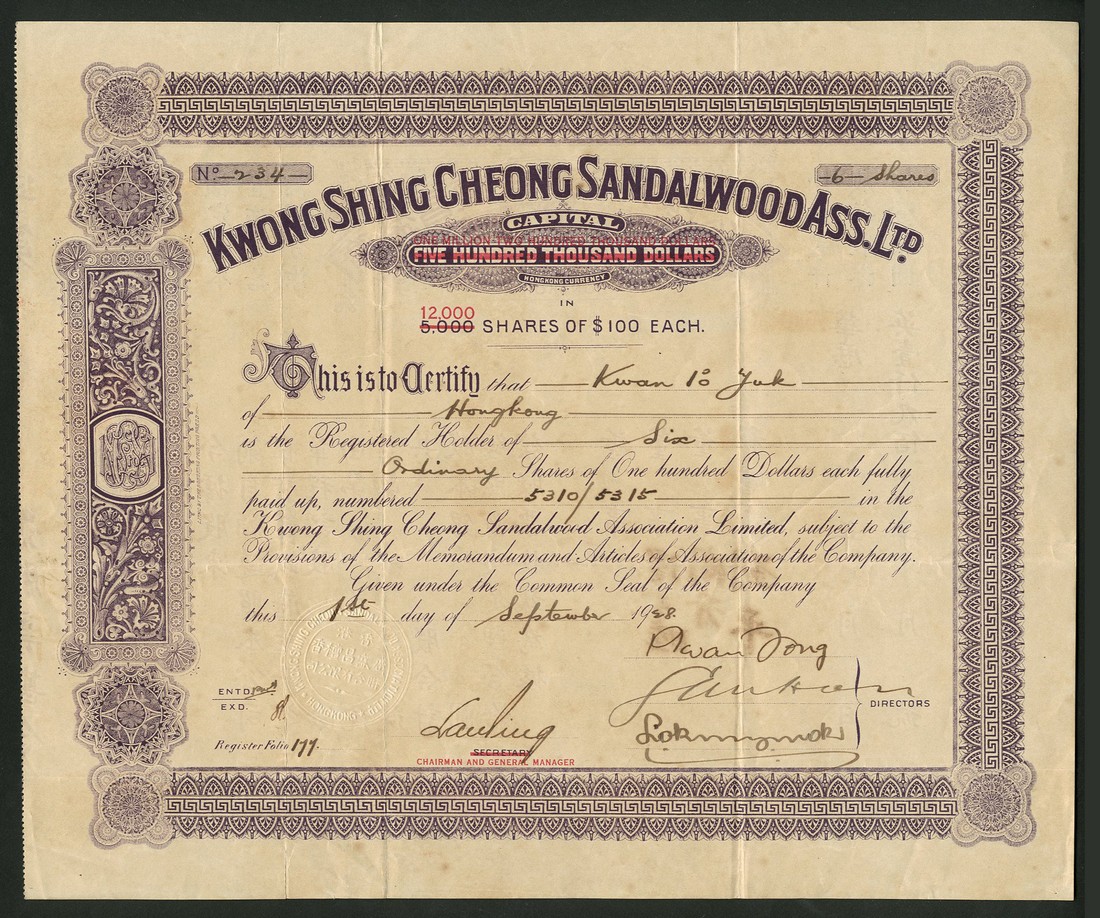 No 234
6 Shares
KWONG SHING CHEONG SANDALWOOD ASS. LTD.
CAPITAL
ONE MILLION TWO HUNDRED THOUSAND DOLLARS
FIVE HUNDRED THOUSAND DOLLARS
HONGKONG CURRENCY
IN
12,000
5,000 SHARES OF $100 EACH.
This is to Certify that Kwan Yuk
of Hongkong
is the Registered Holder of Six
Ordinary Shares of One hundred Dollars each fully
paid up, numbered 5310/5315 in the
Kwong Shing Cheong Sandalwood Association Limited, subject to the
Provisions of the Memorandum and Articles of Association of the Company.
Given under the Common Seal of the Company
this 1st day of September 19
ENTD
EXD.
Register Folio 177.
DIRECTORS
SECRETARY
CHAIRMAN AND GENERAL MANAGER